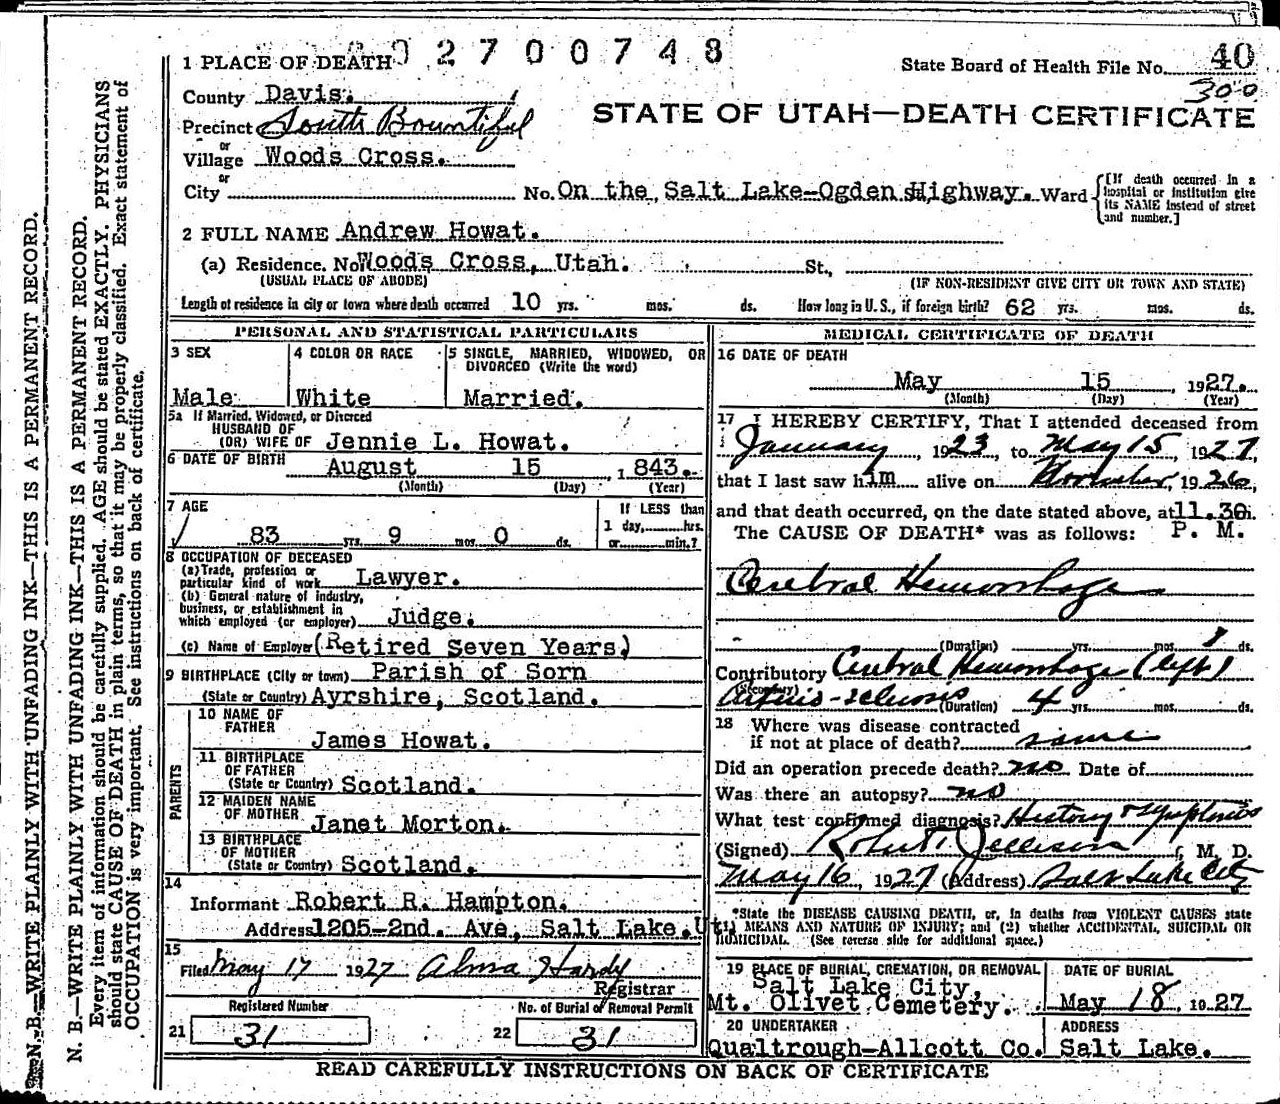 02700748
1 PLACE OF DEATH
State Board of Health File No. 40
300
County Davis.
STATE OF UTAH—DEATH CERTIFICATE
Precinct South Bountiful
or
Village Woods Cross.
or
City No. On the Salt Lake-Ogden Highway. Ward
[If death occurred in a hospital or institution give its NAME instead of street and number.]
2 FULL NAME Andrew Howat.
(a) Residence. No. Woods Cross, Utah. St.,
(USUAL PLACE OF ABODE) (IF NON-RESIDENT GIVE CITY OR TOWN AND STATE)
Length of residence in city or town where death occurred 10 yrs. mos. ds. How long in U.S., if foreign birth? 62 yrs. mos. ds.
PERSONAL AND STATISTICAL PARTICULARS
3 SEX
Male
4 COLOR OR RACE
White
5 SINGLE, MARRIED, WIDOWED, OR
DIVORCED (Write the word)
Married.
5a If Married, Widowed, or Divorced
HUSBAND OF
(OR) WIFE OF Jennie L. Howat.
6 DATE OF BIRTH August 15 1843.
(Month) (Day) (Year)
7 AGE
83 yrs. 9 mos. 0 ds.
If LESS than
1 day,........hrs.
or........min.?
8 OCCUPATION OF DECEASED
(a) Trade, profession or
particular kind of work Lawyer.
(b) General nature of industry,
business, or establishment in
which employed (or employer) Judge.
(c) Name of Employer (Retired Seven Years)
9 BIRTHPLACE (City or town) Parish of Sorn
(State or Country) Ayrshire, Scotland.
PARENTS
10 NAME OF
FATHER
James Howat.
11 BIRTHPLACE
OF FATHER
(State or Country) Scotland.
12 MAIDEN NAME
OF MOTHER
Janet Morton.
13 BIRTHPLACE
OF MOTHER
(State or Country) Scotland.
14
Informant Robert R. Hampton.
Address 1205-2nd. Ave, Salt Lake.Ut.
15
Filed May 17 1927 Alma Hardy
Registrar
Registered Number
21 31
No. of Burial or Removal Permit
22 31
MEDICAL CERTIFICATE OF DEATH
16 DATE OF DEATH
May 15, 1927.
(Month) (Day) (Year)
17 I HEREBY CERTIFY, That I attended deceased from
January, 1923, to May 15, 1927,
that I last saw him alive on November, 1926,
and that death occurred, on the date stated above, at 11.30
The CAUSE OF DEATH* was as follows: P. M.
Cerebral Hemorrhage
(Duration) yrs. mos. 1 ds.
Contributory Cerebral Hemorrhage (left)
(Secondary)
Arterio-sclerosis (Duration) 4 yrs. mos. ds.
18 Where was disease contracted
if not at place of death? same
Did an operation precede death? no Date of
Was there an autopsy? no
What test confirmed diagnosis? History & symptoms
(Signed) Robert Jellison, M. D.
May 16, 1927 (Address) Salt Lake City
*State the DISEASE CAUSING DEATH, or, in deaths from VIOLENT CAUSES state
MEANS AND NATURE OF INJURY; and (2) whether ACCIDENTAL, SUICIDAL OR
HOMICIDAL. (See reverse side for additional space.)
19 PLACE OF BURIAL, CREMATION, OR REMOVAL
Salt Lake City,
Mt. Olivet Cemetery.
DATE OF BURIAL
May 18, 1927
20 UNDERTAKER
Qualtrough-Allcott Co.
ADDRESS
Salt Lake.
READ CAREFULLY INSTRUCTIONS ON BACK OF CERTIFICATE
N. B.—WRITE PLAINLY WITH UNFADING INK—THIS IS A PERMANENT RECORD.
N. B.—WRITE PLAINLY WITH UNFADING INK—THIS IS A PERMANENT RECORD.
Every item of information should be carefully supplied. AGE should be stated EXACTLY. PHYSICIANS
should state CAUSE OF DEATH in plain terms, so that it may be properly classified. Exact statement of
OCCUPATION is very important. See instructions on back of certificate.